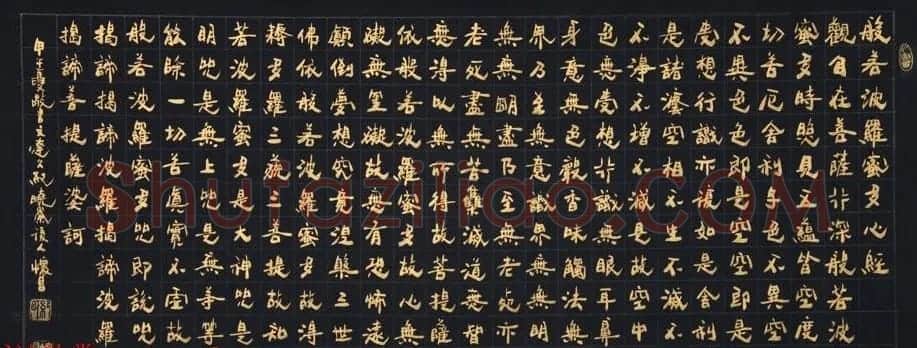 般若波羅蜜多心經
觀自在菩薩行深般若波
蜜多時照見五蘊皆空度
切苦厄舍利子色不異空
不異色色即是空空即是
受想行識亦復如是舍利
是諸法空相不生不滅不
不淨不增不減是故空中
色無受想行識無眼耳鼻
身意無色聲香味觸法無
界乃至無意識界無無明
無無明盡乃至無老死亦
老死盡無苦集滅道無智
無得以無所得故菩提薩
依般若波羅蜜多故心無
礙無罣礙故無有恐怖遠
顛倒夢想究竟涅槃三世
佛依般若波羅蜜多故得
耨多羅三藐三菩提故知
若波羅蜜多是大神咒是
明咒是無上咒是無等等
能除一切苦真實不虛故
般若波羅蜜多咒即說咒
揭諦揭諦波羅揭諦波羅
揭諦菩提薩婆訶
Shufaziliao.com